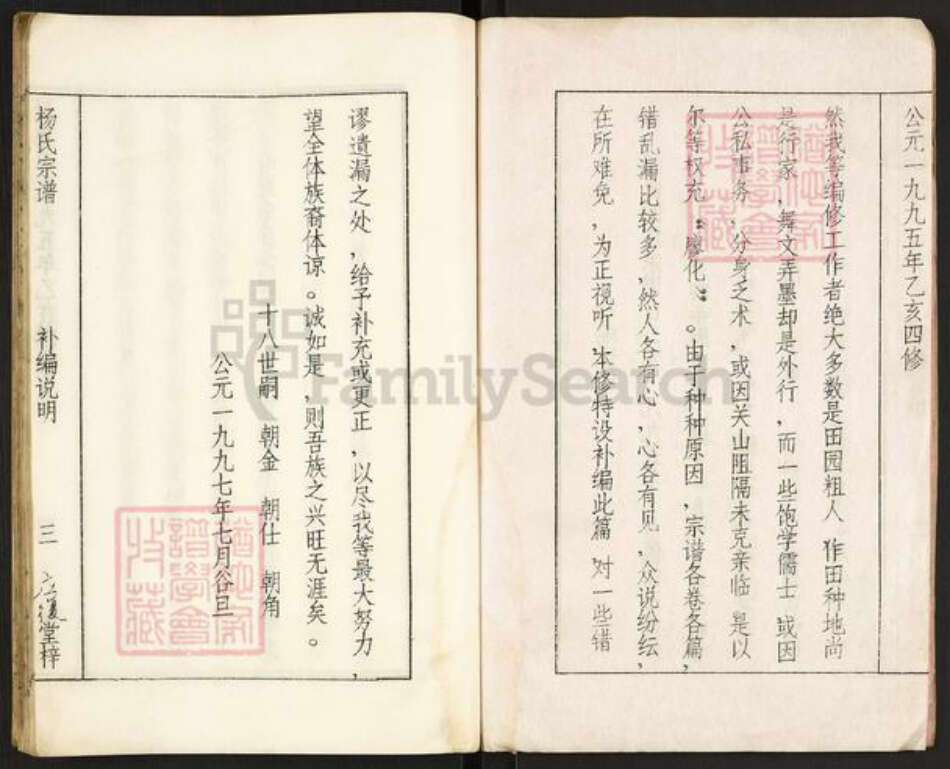 公元一九九五年乙亥四修
然我等编修工作者绝大多数是田园粗人 作田种地尚
是行家,舞文弄墨却是外行,而一些饱学儒士 或因
公私事务,分身乏术,或因关山阻隔未克亲临 是以
尔等权充:廖化:。由于种种原因,宗谱各卷各篇,
错乱漏比较多,然人各有心,心各有见,众说纷纭,
在所难免,为正视听 本修特设补编此篇 对一些错
谬遗漏之处,给予补充或更正,以尽我等最大努力,
望全体族裔体谅。诚如是,则吾族之兴旺无涯矣。
十八世嗣 朝金 朝仕 朝角
公元一九九七年七月谷旦
杨氏宗谱 补编说明 三 堂梓
FamilySearch